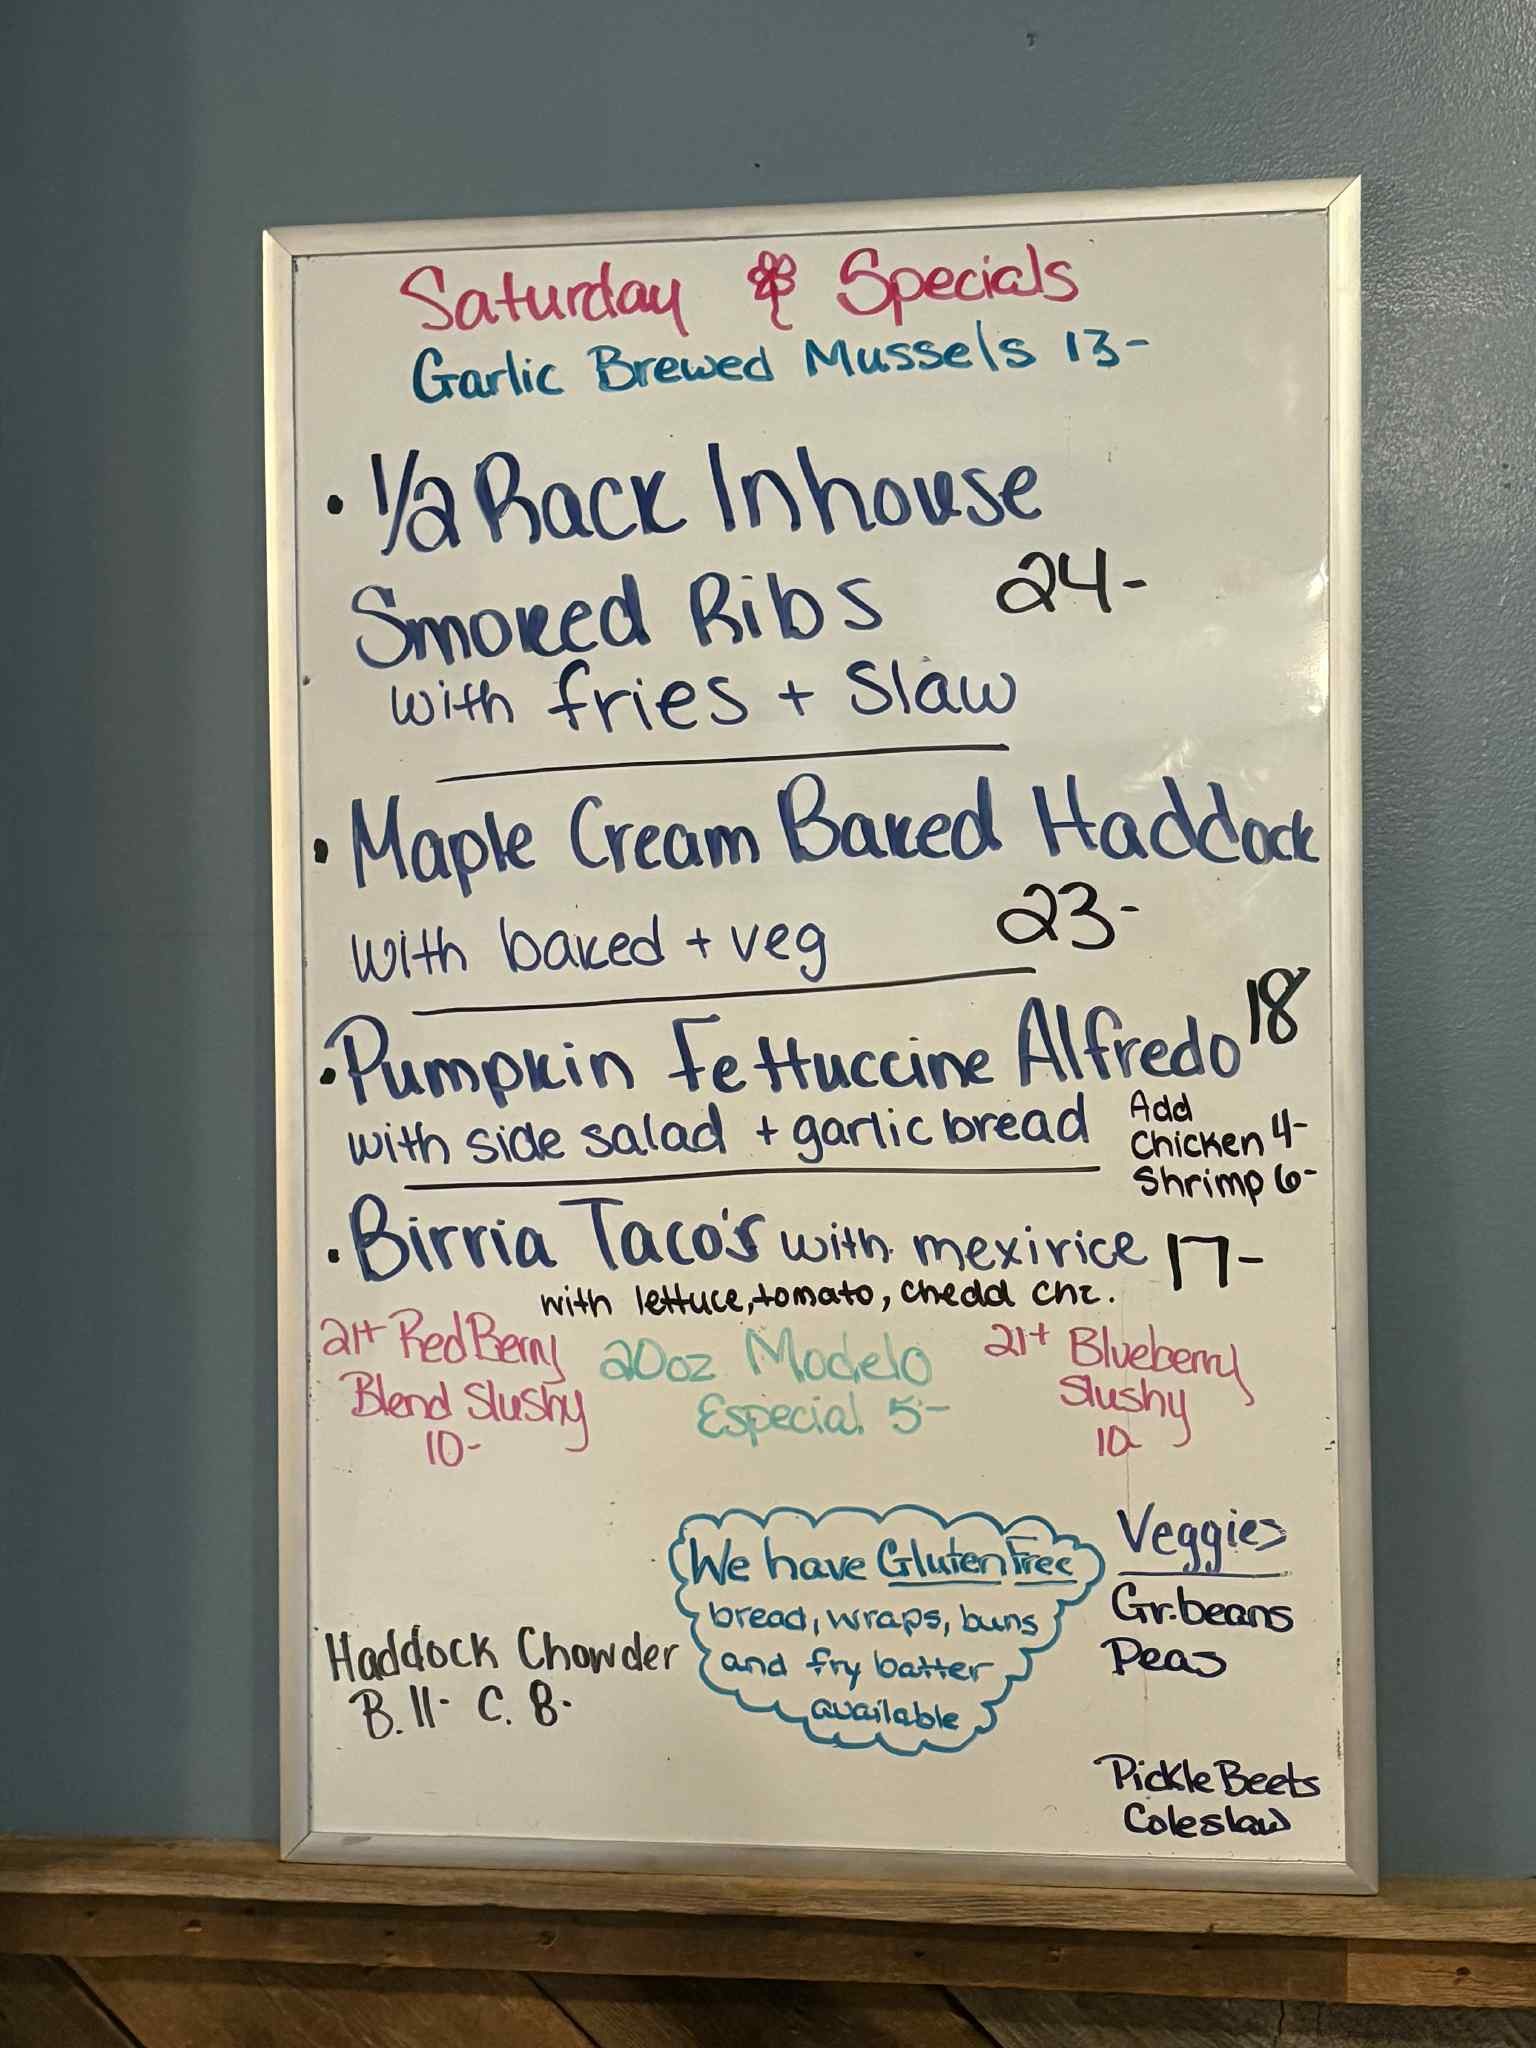 Saturday Specials
Garlic Brewed Mussels 13-
• 1/2 Rack Inhouse
Smoked Ribs 24-
with fries + slaw
• Maple Cream Baked Haddock
with baked + veg 23-
• Pumpkin Fettuccine Alfredo 18
with side salad + garlic bread
Add
Chicken 4-
Shrimp 6-
• Birria Taco's with mexi rice 17-
with lettuce, tomato, chedd chz.
21+ Red Berry
Blend Slushy
10-
20oz Modelo
Especial 5-
21+ Blueberry
Slushy
10-
Haddock Chowder
B. 11- C. 8-
We have Gluten Free
bread, wraps, buns
and fry batter
available
Veggies
Gr. beans
Peas
Pickle Beets
Coleslaw